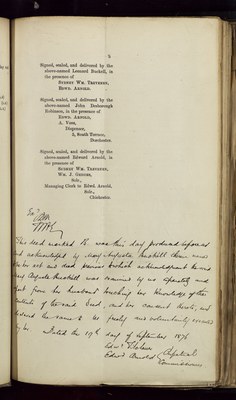 3
Signed, sealed, and delivered by the
above-named Leonard Buckell, in
the presence of
SYDNEY WM. TREVENEN,
EDWD. ARNOLD.
Signed, sealed, and delivered by the
above-named John Desborough
Robinson, in the presence of
EDWD. ARNOLD,
A. VOSS,
Dispenser,
5, South Terrace,
Dorchester.
Signed, sealed, and delivered by the
above-named Edward Arnold, in
the presence of
SYDNEY WM. TREVENEN,
WM. J.
Solr.,
Managing Clerk to Edwd. Arnold,
Solr.,
Chichester.
This deed marked was this day produced before us
and acknowledged by Mary Augusta therein named
to be her act and deed previous to which acknowledgment the said
Mary Augusta was examined by us separately and
apart from her husband touching her knowledge of the
contents of the said deed, and her consent thereto, and
declared the same to be freely and voluntarily executed
by her. Dated the 19th day of September 1876
Edwd
Edwd Arnold
Commissioners